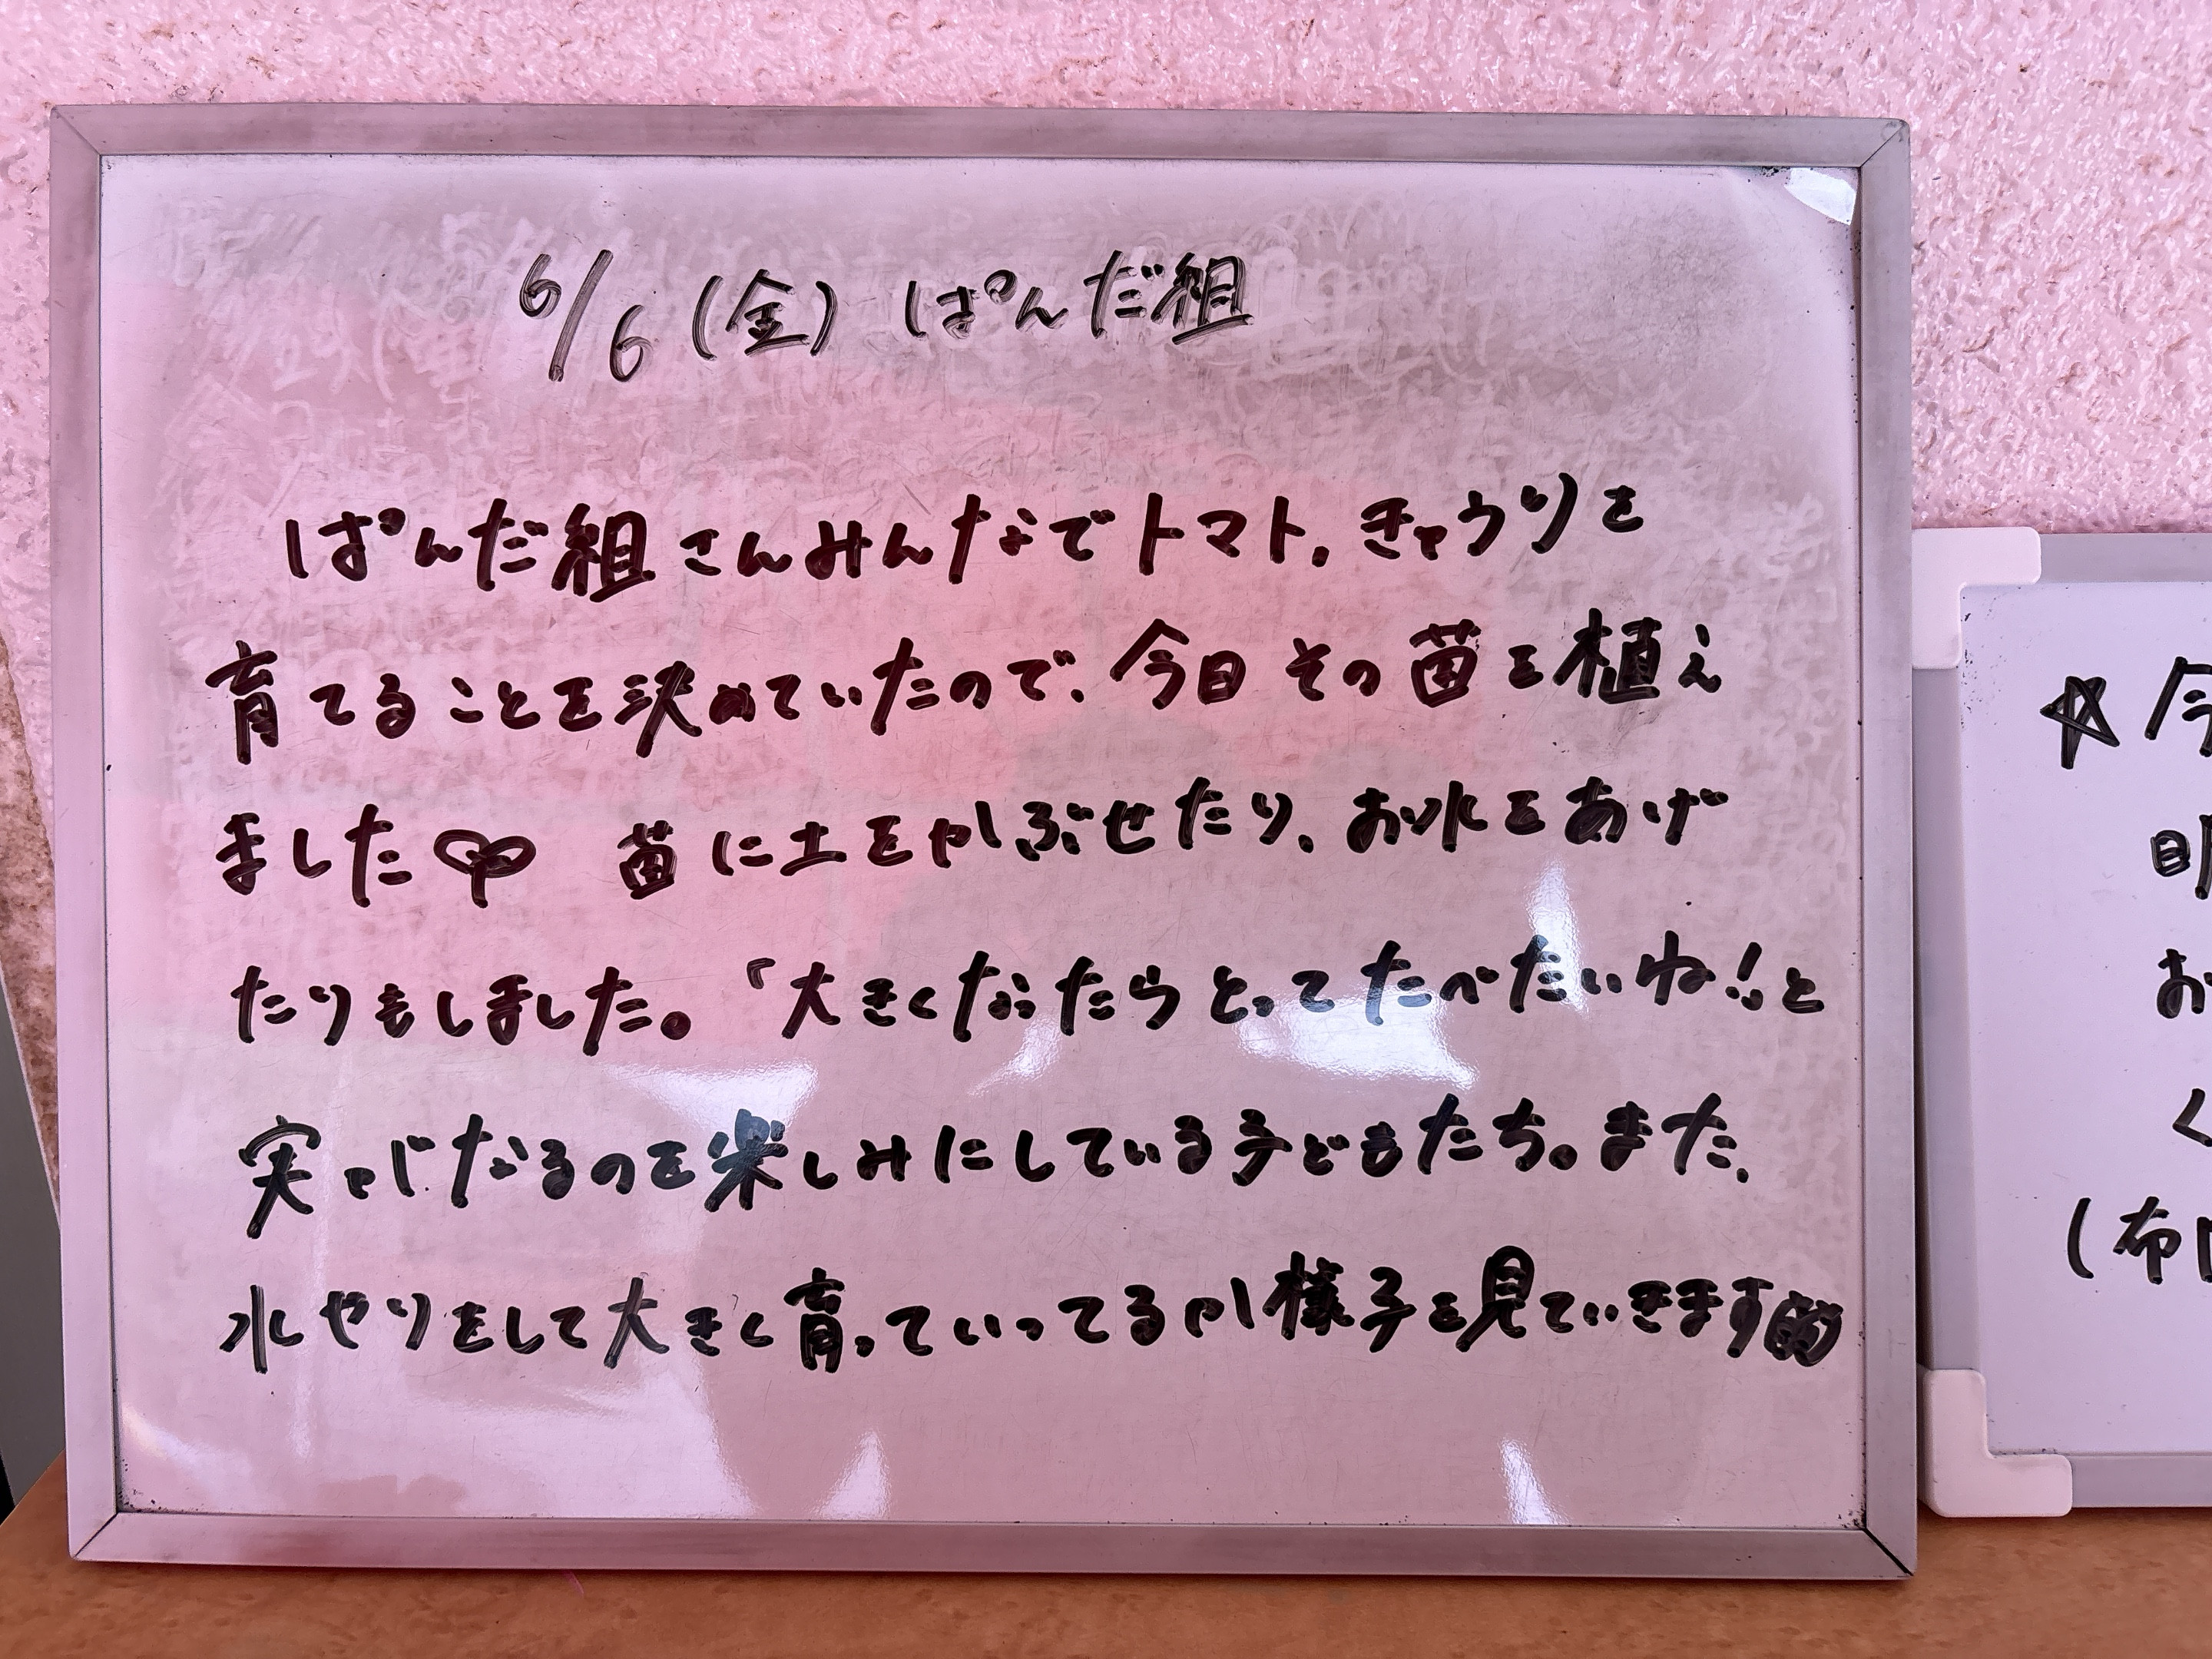 6/6(金) ぱんだ組
ぱんだ組さんみんなでトマト、きゅうりを
育てることを決めていたので、今日その苗を植え
ました 苗に土をかぶせたり、お水をあげ
たりもしました。「大きくなったらとってたべたいね!」と
実がなるのを楽しみにしている子どもたち。また、
水やりをして大きく育っていってるか様子を見ていきます
☆今
明
お
く
(布